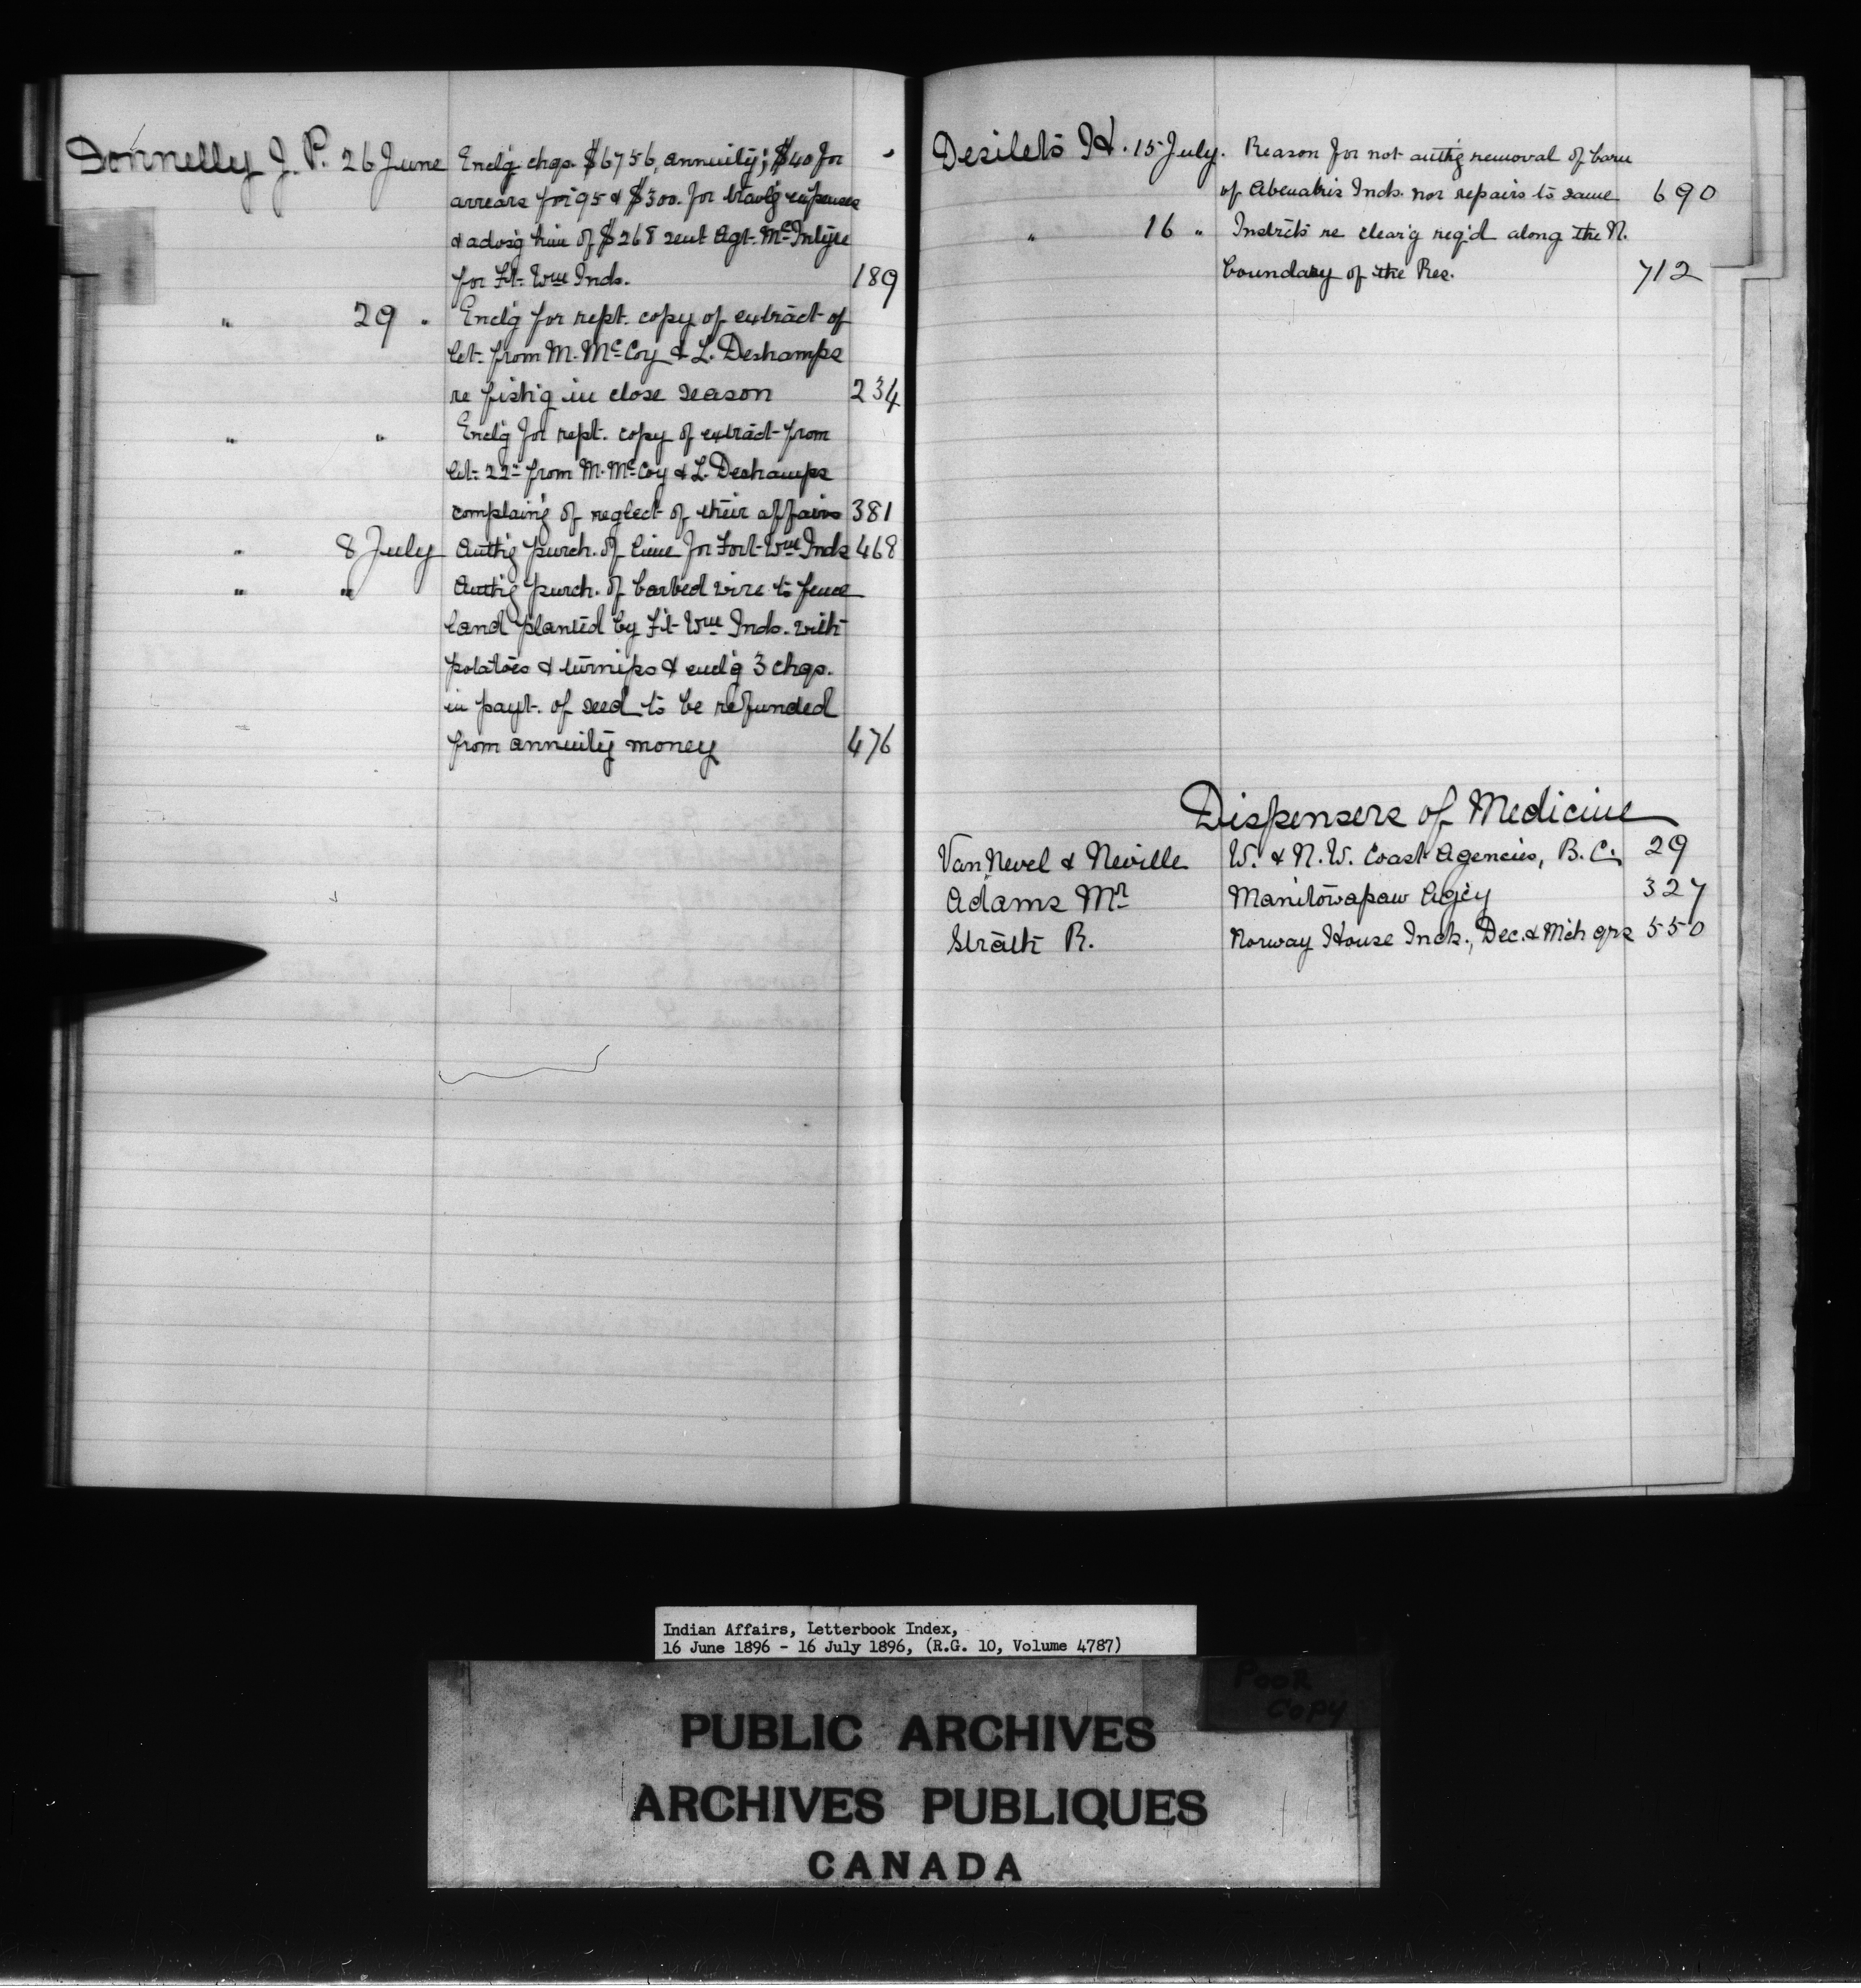 Donnelly J. P. 26 June Encl'g chqs. $6756, annuity; $40 for
arrears for '95 & $300. for trav'lg expenses
& advs'g him of $268 sent Agt. McIntyre
for Ft. Wm Inds. 189
" 29 " Encl'g for rept. copy of extract of
let. from M. McCoy & L. Deshamps
re fish'g in close season 234
" " Encl'g for rept. copy of extract from
let. 22nd from M. McCoy & L. Deshamps
complain'g of neglect of their affairs 381
" 8 July Auth'g purch. of lime for Fort Wm Inds 468
" " Auth'g purch. of barbed wire to fence
land planted by Ft. Wm Inds. with
potatoes & turnips & encl'g 3 chqs.
in payt. of seed to be refunded
from annuity money 476
Desilets H. 15 July. Reason for not auth'g removal of barn
of Abenakis Inds. nor repairs to same 690
" 16 " Instr'cts re clear'g req'd along the N.
boundary of the Res. 712
Dispensers of Medicine
Van Nevel & Neville W. & N.W. Coast Agencies, B.C. 29
Adams Mr Manitowapaw Ag'cy 327
Strath R. Norway House Inds., Dec. & M'ch qrs 550
Indian Affairs, Letterbook Index,
16 June 1896 - 16 July 1896, (R.G. 10, Volume 4787)
Poor
Copy
PUBLIC ARCHIVES
ARCHIVES PUBLIQUES
CANADA